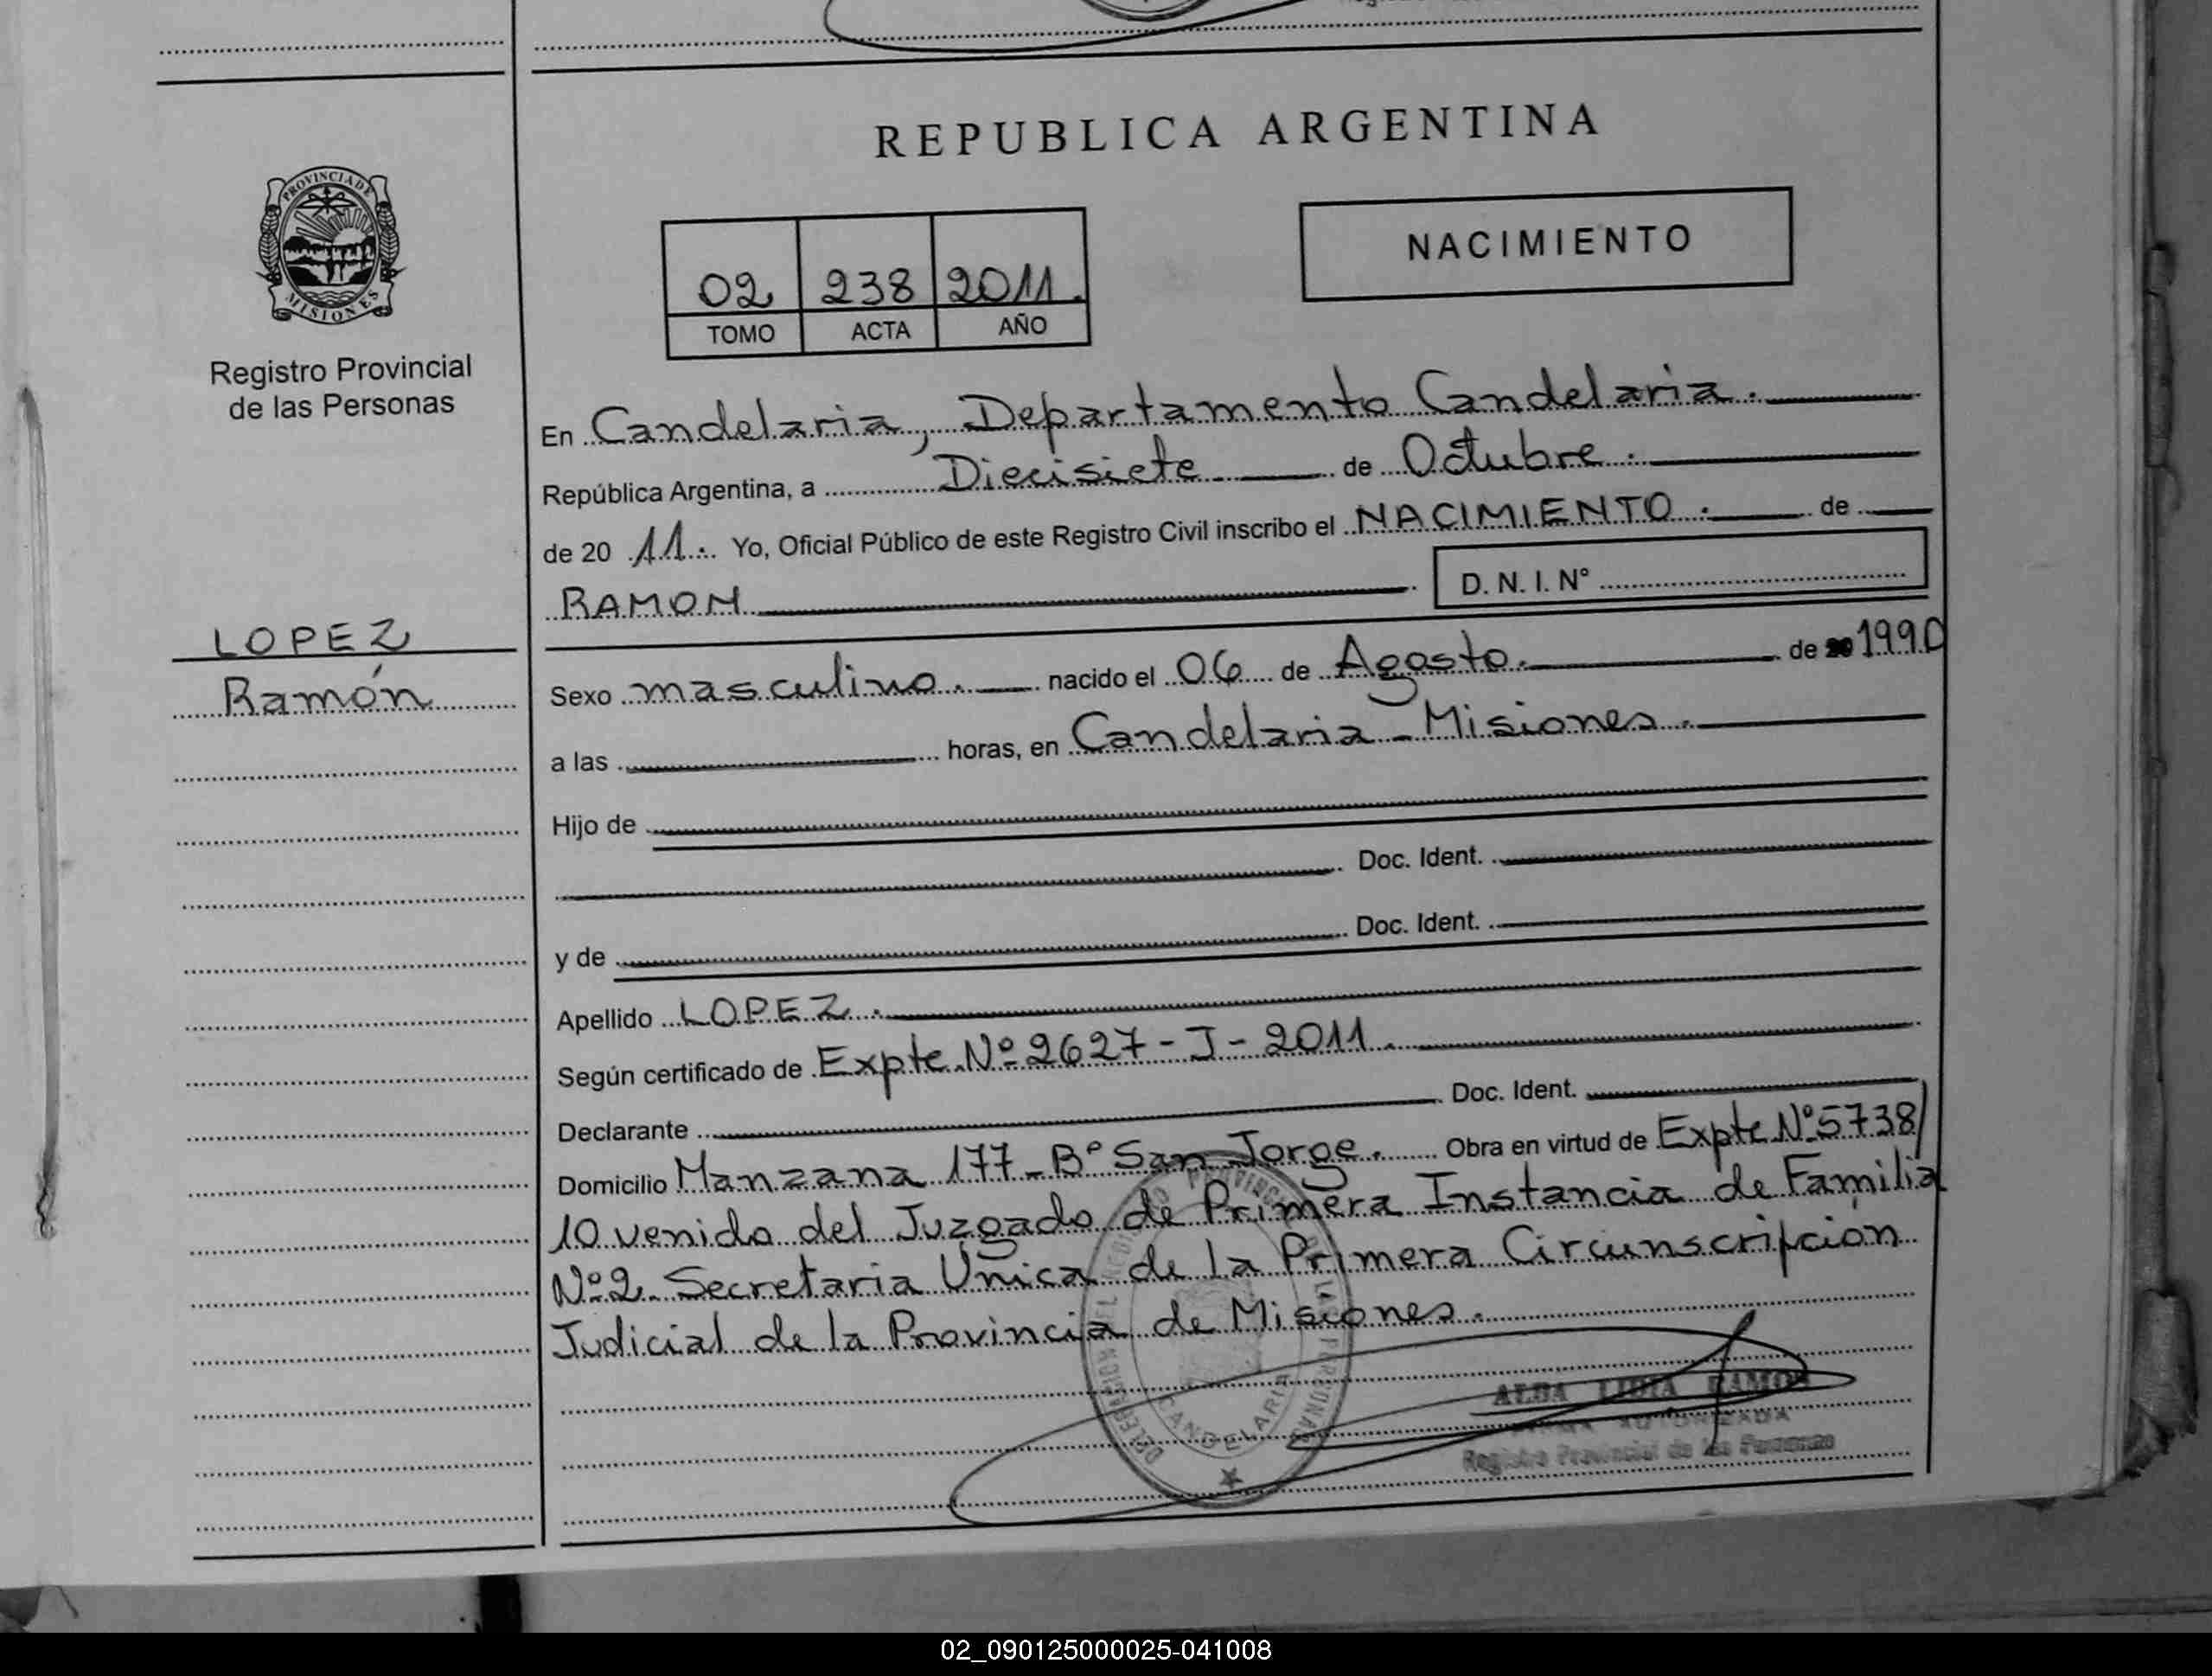 REPUBLICA ARGENTINA
PROVINCIA DE
MISIONES
Registro Provincial
de las Personas
02 238 2011.
TOMO ACTA AÑO
NACIMIENTO
En Candelaria, Departamento Candelaria.
República Argentina, a Diecisiete de Octubre.
de 20 11. Yo, Oficial Público de este Registro Civil inscribo el NACIMIENTO. de
RAMON D. N. I. N°
LOPEZ
Ramón
Sexo masculino. nacido el 06 de Agosto. de 20 1990
a las horas, en Candelaria - Misiones.
Hijo de
Doc. Ident.
y de Doc. Ident.
Apellido LOPEZ.
Según certificado de Expte. Nº 2627 - J - 2011.
Declarante Doc. Ident.
Domicilio Manzana 177 - Bº San Jorge. Obra en virtud de Expte Nº 5738/
10 venido del Juzgado de Primera Instancia de Familia
Nº 2. Secretaria Unica de la Primera Circunscripción
Judicial de la Provincia de Misiones.
CANDELARIA
ALBA LIDIA RAMON
Registro Provincial de las Personas
02_090125000025-041008